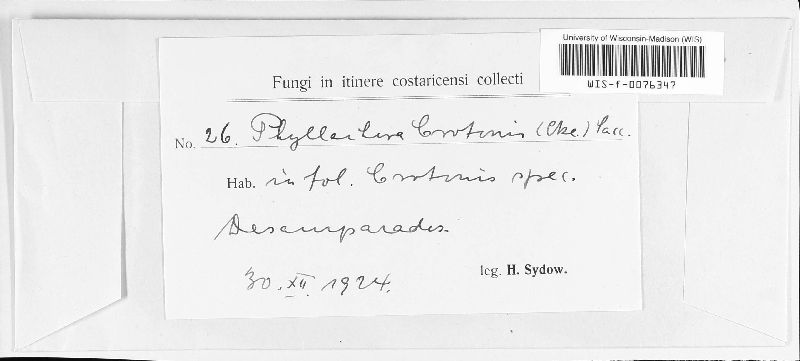 University of Wisconsin-Madison (WIS)
WIS-f-0076347
Fungi in itinere costaricensi collecti
No. 26. Phyllachora Crotonis (Cke.) Sacc.
Hab. in fol. Crotonis spec.
Desamparados.
30.XII.1924.
leg. H. Sydow.